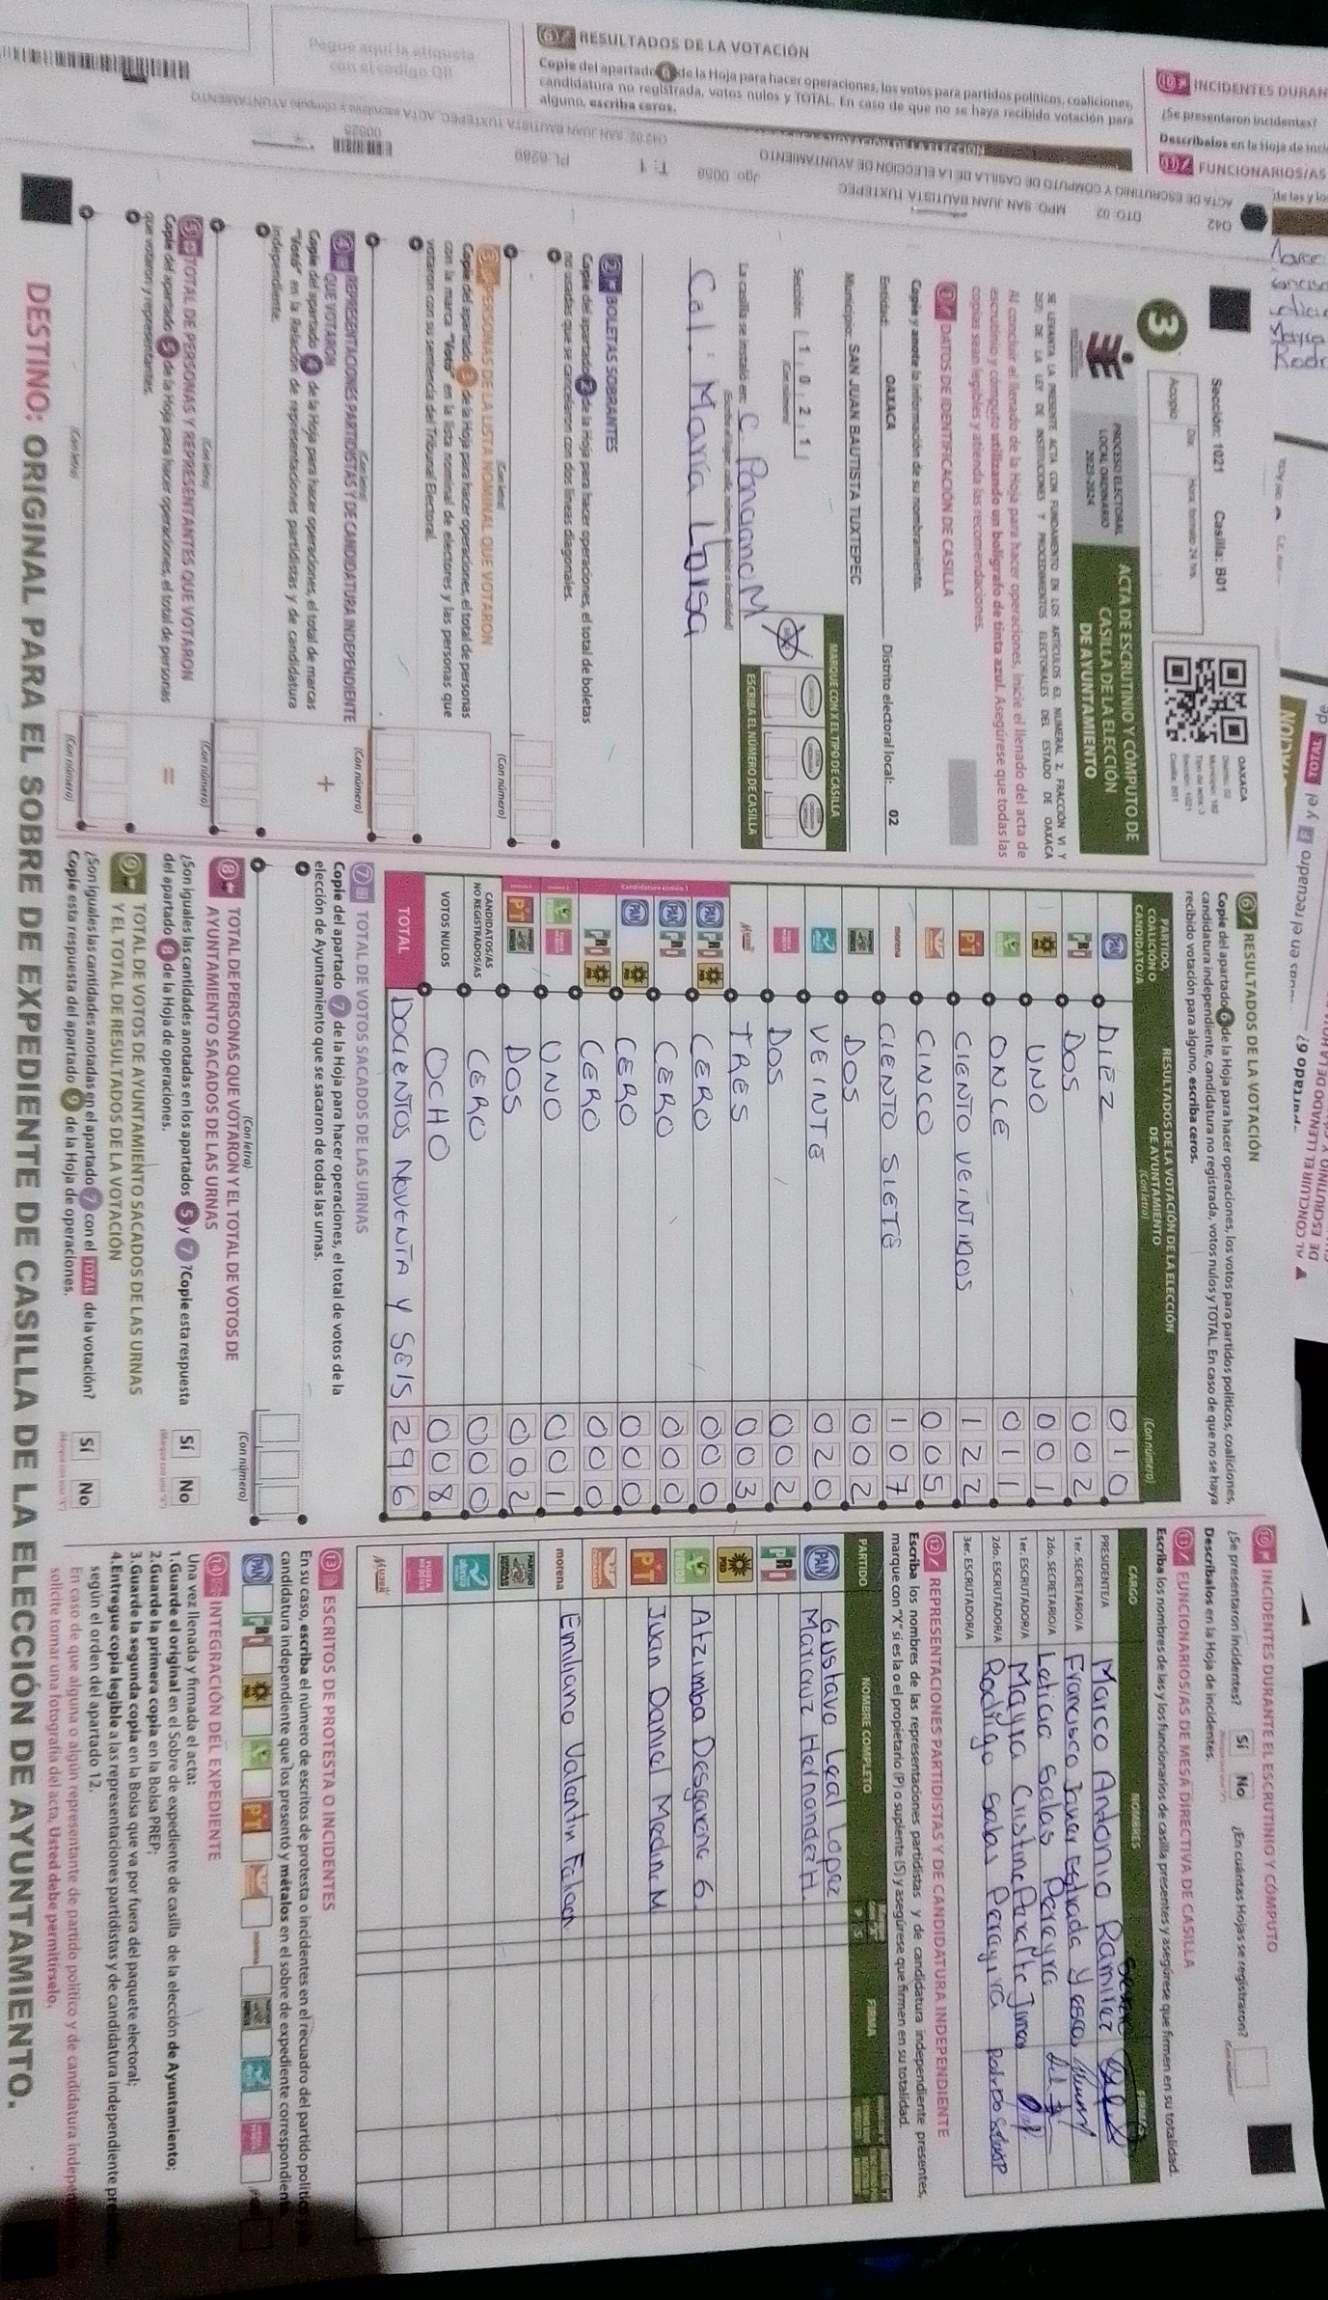 RESULTADOS DE LA VOTACIÓN
Copie del apartado 6 de la Hoja para hacer operaciones, los votos para partidos políticos, coaliciones,
candidatura no registrada, votos nulos y TOTAL. En caso de que no se haya recibido votación para
alguno, escriba ceros.
Pegue aquí la etiqueta
con el código QR
INCIDENTES DURAN
¿Se presentaron incidentes?
FUNCIONARIOS/AS
3
Sección: 1021 Casilla: B01
Acopio
OAXACA
PROCESO ELECTORAL
LOCAL ORDINARIO
2023-2024
ACTA DE ESCRUTINIO Y CÓMPUTO DE
CASILLA DE LA ELECCIÓN
DE AYUNTAMIENTO
SE LEVANTA LA PRESENTE ACTA CON FUNDAMENTO EN LOS ARTÍCULOS 63, NUMERAL 2, FRACCIÓN VI Y
DE LA LEY DE INSTITUCIONES Y PROCEDIMIENTOS ELECTORALES DEL ESTADO DE OAXACA
Al concluir el llenado de la Hoja para hacer operaciones, inicie el llenado del acta de
escrutinio y cómputo utilizando un bolígrafo de tinta azul. Asegúrese que todas las
copias sean legibles y atienda las recomendaciones.
1 DATOS DE IDENTIFICACIÓN DE CASILLA
Copie y anote la información de su nombramiento.
Entidad: OAXACA Distrito electoral local: 02
Municipio: SAN JUAN BAUTISTA TUXTEPEC
Sección: 1 0 2 1
(Con número)
MARQUE CON X EL TIPO DE CASILLA
ESCRIBA EL NÚMERO DE CASILLA
La casilla se instaló en: C. Ponciano M
Col. Maria Luisa
2 BOLETAS SOBRANTES
Copie del apartado 2 de la Hoja para hacer operaciones, el total de boletas
no usadas que se cancelaron con dos líneas diagonales.
(Con letra) (Con número)
3 PERSONAS DE LA LISTA NOMINAL QUE VOTARON
Copie del apartado 3 de la Hoja para hacer operaciones, el total de personas
con la marca "Votó" en la lista nominal de electores y las personas que
votaron con su sentencia del Tribunal Electoral.
(Con letra) (Con número)
4 REPRESENTACIONES PARTIDISTAS Y DE CANDIDATURA INDEPENDIENTE
QUE VOTARON
Copie del apartado 4 de la Hoja para hacer operaciones, el total de marcas
"Votó" en la Relación de representaciones partidistas y de candidatura
independiente.
+
(Con letra) (Con número)
5 TOTAL DE PERSONAS Y REPRESENTANTES QUE VOTARON
Copie del apartado 5 de la Hoja para hacer operaciones, el total de personas
que votaron y representantes.
=
(Con letra) (Con número)
6 RESULTADOS DE LA VOTACIÓN
Copie del apartado 6 de la Hoja para hacer operaciones, los votos para partidos políticos, coaliciones,
candidatura independiente, candidatura no registrada, votos nulos y TOTAL. En caso de que no se haya
recibido votación para alguno, escriba ceros.
PARTIDO,
COALICIÓN O
CANDIDATO/A
RESULTADOS DE LA VOTACIÓN DE LA ELECCIÓN
DE AYUNTAMIENTO
(Con letra) (Con número)
PAN DIEZ 010
PRI DOS 002
PRD UNO 001
ONCE 011
PT CIENTO VEINTIDOS 122
CINCO 005
morena CIENTO SIETE 107
DOS 002
VEINTE 020
DOS 002
TRES 003
PAN PRI PRD CERO 000
PAN PRI CERO 000
PAN PRD CERO 000
PRI PRD CERO 000
UNO 001
PT DOS 002
CANDIDATOS/AS
NO REGISTRADOS/AS CERO 000
VOTOS NULOS OCHO 008
TOTAL DOCIENTOS NOVENTA Y SEIS 296
7 TOTAL DE VOTOS SACADOS DE LAS URNAS
Copie del apartado 7 de la Hoja para hacer operaciones, el total de votos de la
elección de Ayuntamiento que se sacaron de todas las urnas.
(Con letra) (Con número)
8 TOTAL DE PERSONAS QUE VOTARON Y EL TOTAL DE VOTOS DE
AYUNTAMIENTO SACADOS DE LAS URNAS
¿Son iguales las cantidades anotadas en los apartados 5 y 7? Copie esta respuesta
del apartado 8 de la Hoja de operaciones. Sí No
9 TOTAL DE VOTOS DE AYUNTAMIENTO SACADOS DE LAS URNAS
Y EL TOTAL DE RESULTADOS DE LA VOTACIÓN
¿Son iguales las cantidades anotadas en el apartado 7 con el TOTAL de la votación?
Copie esta respuesta del apartado 9 de la Hoja de operaciones. Sí No
10 INCIDENTES DURANTE EL ESCRUTINIO Y CÓMPUTO
¿Se presentaron incidentes? Sí No ¿En cuántas Hojas se registraron?
Descríbalos en la Hoja de incidentes.
11 FUNCIONARIOS/AS DE MESA DIRECTIVA DE CASILLA
Escriba los nombres de las y los funcionarios de casilla presentes y asegúrese que firmen en su totalidad.
CARGO NOMBRES FIRMA
PRESIDENTE/A Marco Antonio Ramirez
1er. SECRETARIO/A Francisco Javier Estrada
2do. SECRETARIO/A Leticia Salas Pereyra
1er. ESCRUTADOR/A Mayra Cristina Peralta
2do. ESCRUTADOR/A Rodrigo Salas Pereyra
3er. ESCRUTADOR/A
12 REPRESENTACIONES PARTIDISTAS Y DE CANDIDATURA INDEPENDIENTE
Escriba los nombres de las representaciones partidistas y de candidatura independiente presentes,
marque con "X" si es la o el propietario (P) o suplente (S) y asegúrese que firmen en su totalidad.
PARTIDO NOMBRE COMPLETO P S FIRMA
PAN Gustavo Leal Lopez
Maricruz Hernandez H.
PRI
PRD
Atzimba Desgarenc G.
PT Juan Daniel Medina M
morena Emiliano Valentin
13 ESCRITOS DE PROTESTA O INCIDENTES
En su caso, escriba el número de escritos de protesta o incidentes en el recuadro del partido político
candidatura independiente que los presentó y métalos en el sobre de expediente correspondiente
14 INTEGRACIÓN DEL EXPEDIENTE
Una vez llenada y firmada el acta:
1.Guarde el original en el Sobre de expediente de casilla de la elección de Ayuntamiento;
2.Guarde la primera copia en la Bolsa PREP;
3.Guarde la segunda copia en la Bolsa que va por fuera del paquete electoral;
4.Entregue copia legible a las representaciones partidistas y de candidatura independiente
según el orden del apartado 12.
En caso de que alguna o algún representante de partido político y de candidatura
solicite tomar una fotografía del acta, Usted debe permitírselo.
DESTINO: ORIGINAL PARA EL SOBRE DE EXPEDIENTE DE CASILLA DE LA ELECCIÓN DE AYUNTAMIENTO.